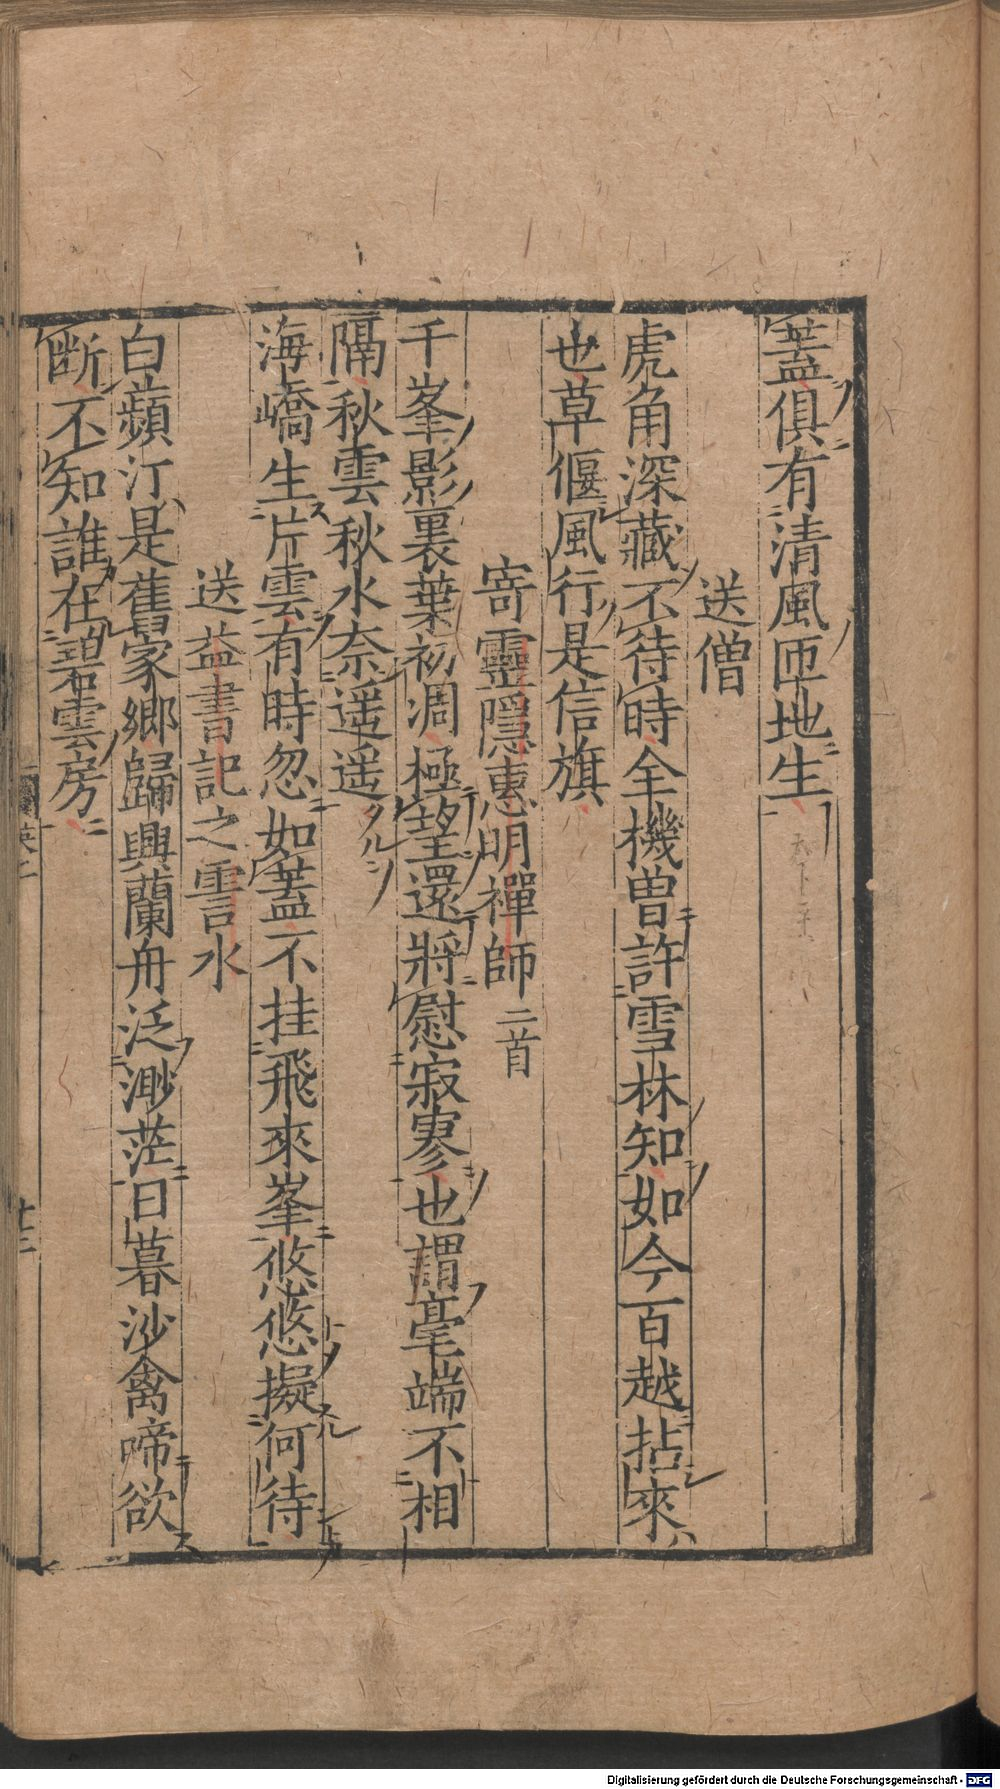 蓋俱有清風匝地生
送僧
虎角深藏不待時全機曽許雪林知如今百越拈來
也草偃風行是信旗
寄靈隱惠明禪師二首
千峯影裏葉初凋極望還將慰寂寥也謂毫端不相
隔秋雲秋水奈遥遥
海嶠生片雲有時忽如蓋不挂飛來峯悠悠擬何待
送益書記之霅水
白蘋汀是舊家鄉歸興蘭舟泛渺茫日暮沙禽啼欲
断不知誰在碧雲房
Digitalisierung gefördert durch die Deutsche Forschungsgemeinschaft - DFG